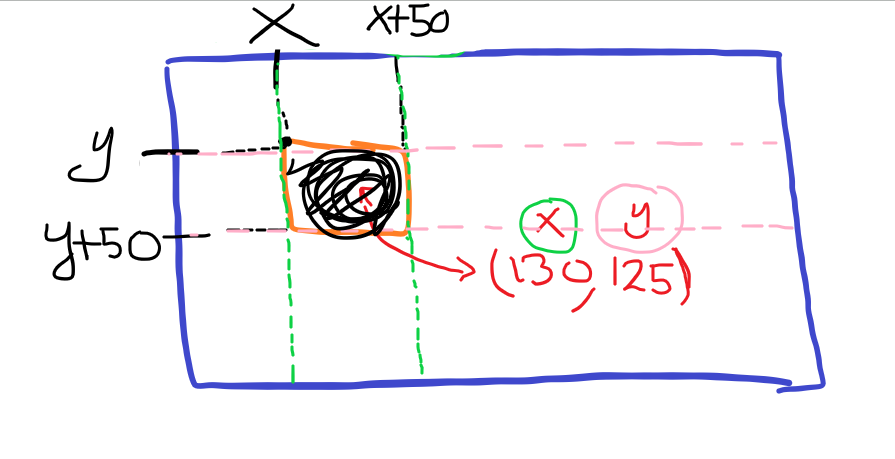 X x+50
y
y+50
x y
(130, 125)